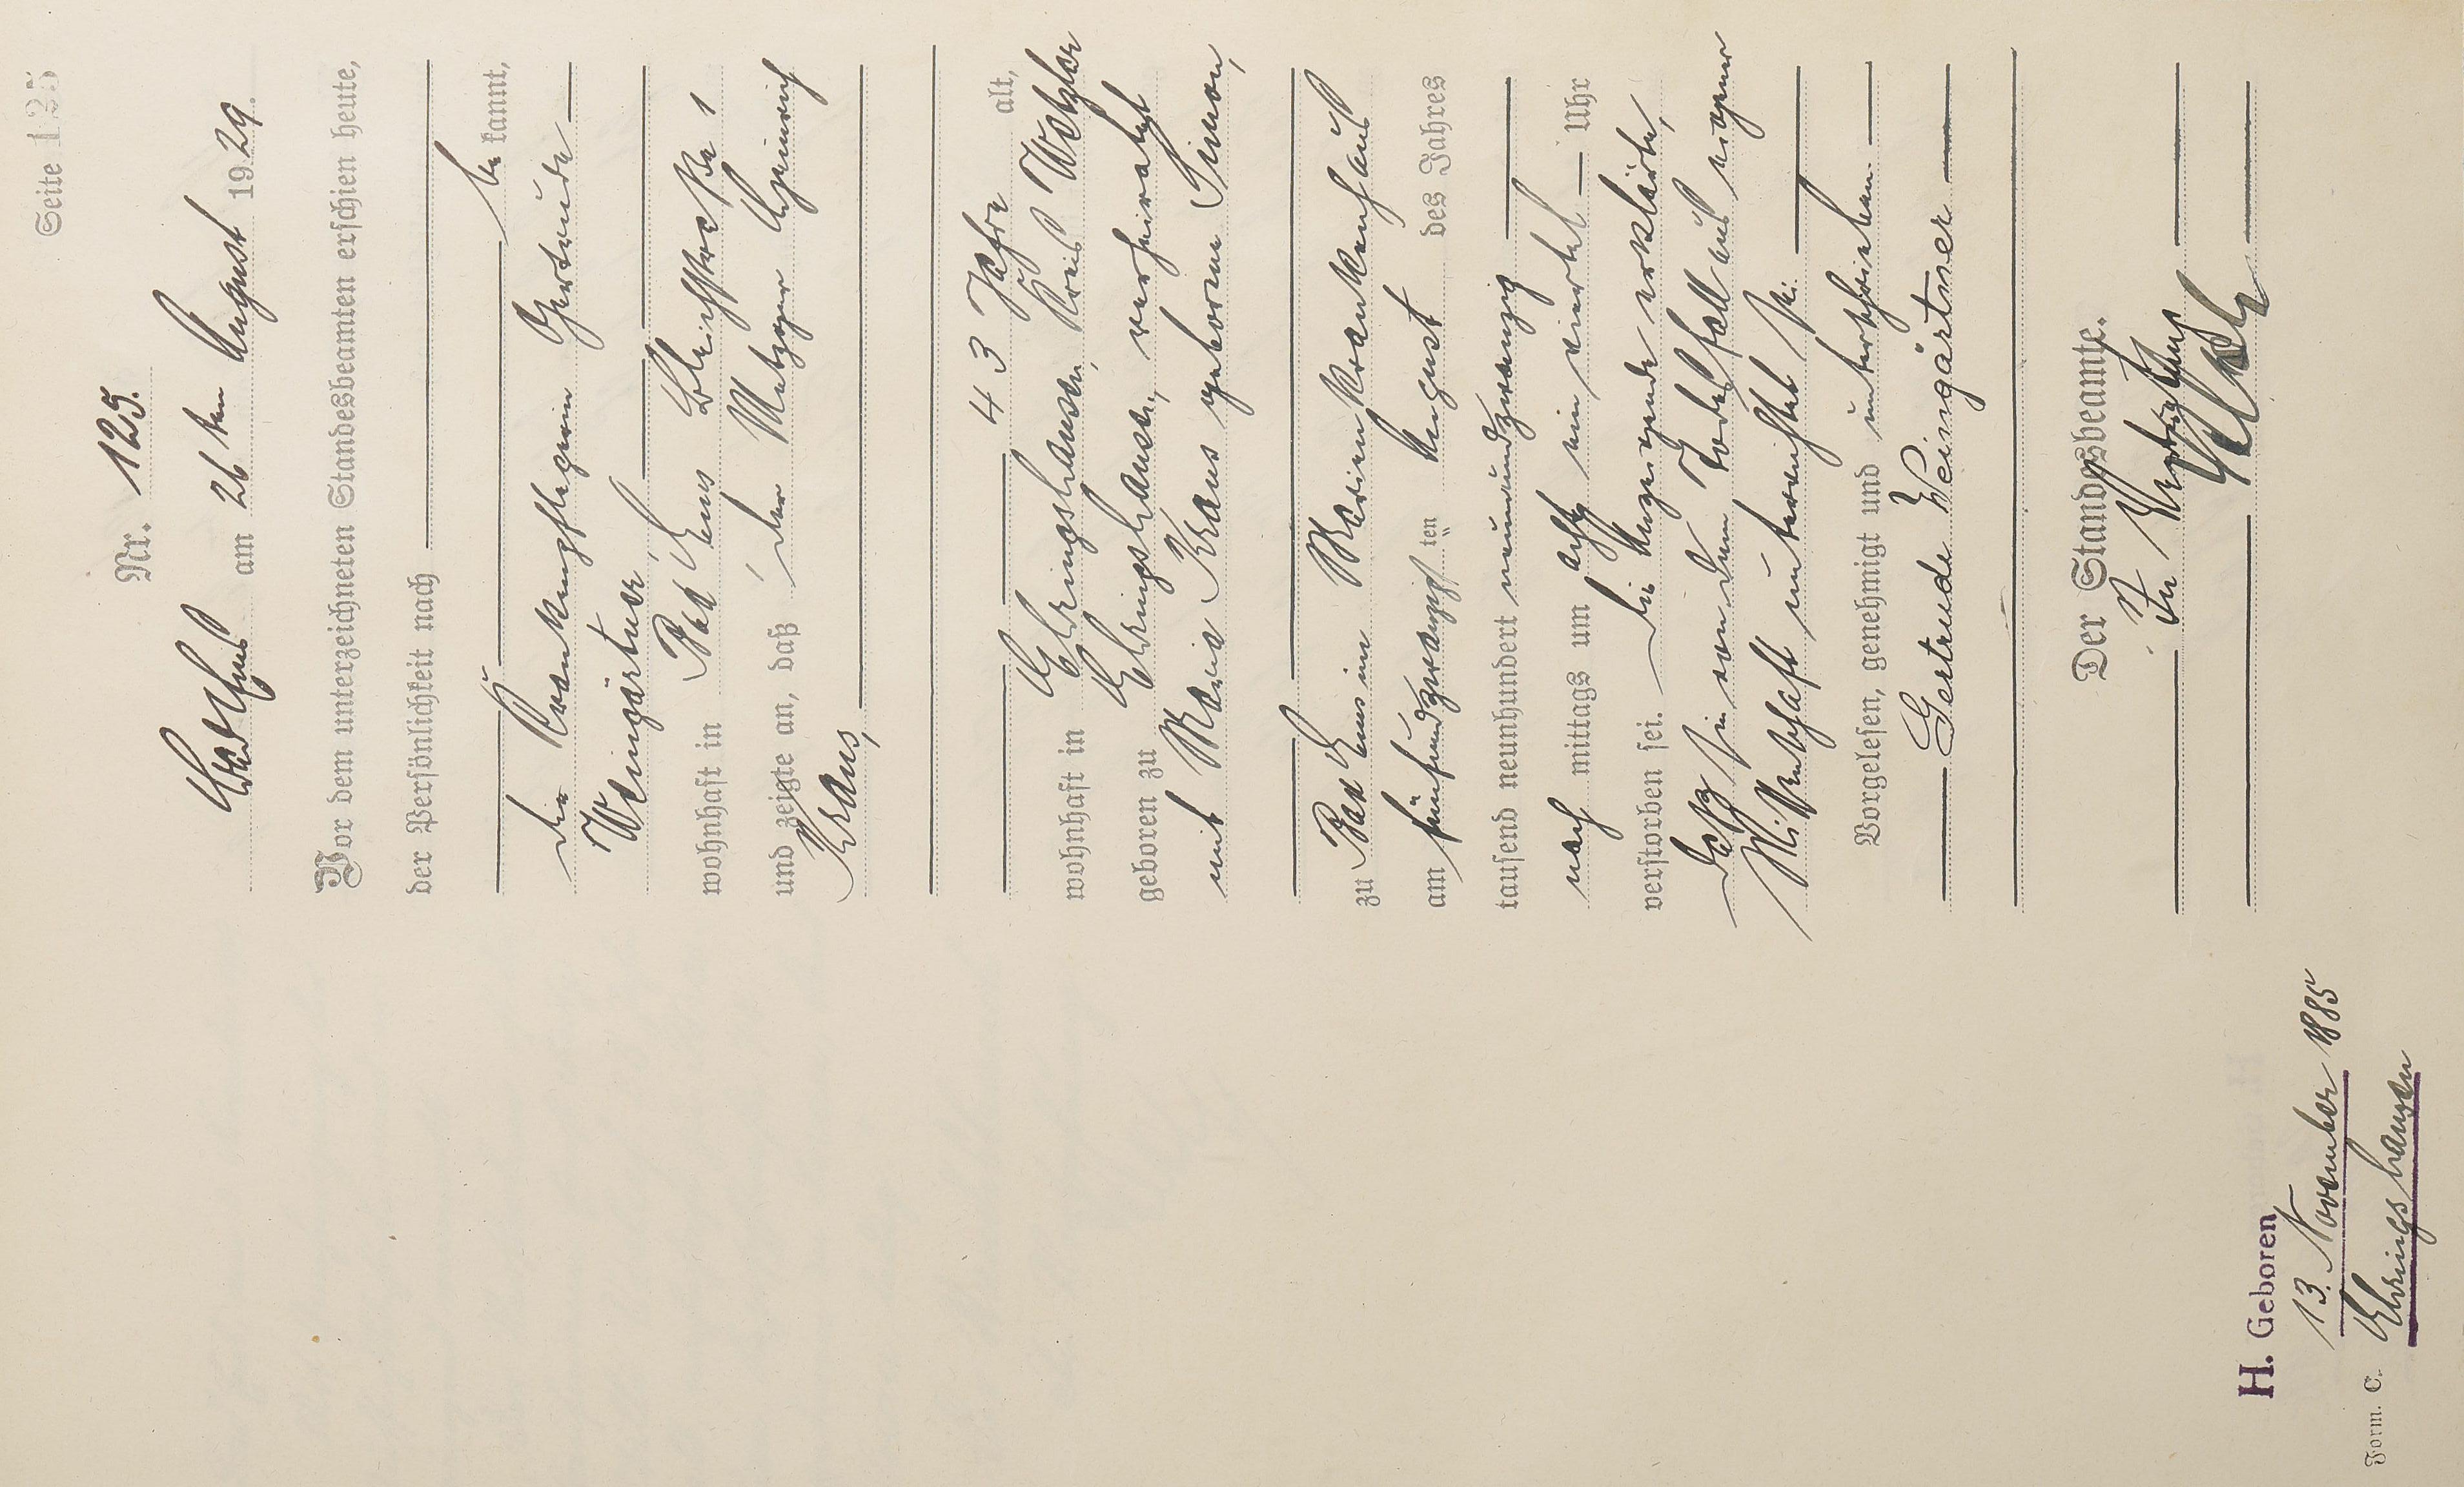 Seite 125
Nr. 125.
Bad Ems am 26 ten August 1929.
Vor dem unterzeichneten Standesbeamten erschien heute,
der Persönlichkeit nach
be kannt,
die Krankenpflegerin Gertrude
Weingärtner
wohnhaft in Bad Ems Bleichstraße 1
und zeigte an, daß der Metzger Heinrich
Kraus,
43 Jahre alt,
wohnhaft in Ehringshausen, Kreis Wetzlar
geboren zu Ehringshausen, verheiratet
mit Maria Kraus geborene Simon,
zu Bad Ems im Marienkrankenhaus
am fünfundzwanzigsten August des Jahres
tausend neunhundert neunundzwanzig
nach mittags um acht ein viertel Uhr
verstorben sei. Die Anzeigende erklärte,
daß sie von dem Todesfall aus eigener
Wissenschaft unterrichtet sei.
Vorgelesen, genehmigt und unterschrieben.
Gertrude Weingärtner
Der Standesbeamte.
In Vertretung
H. Geboren
13. November 1885
Ehringshausen
Form. C.